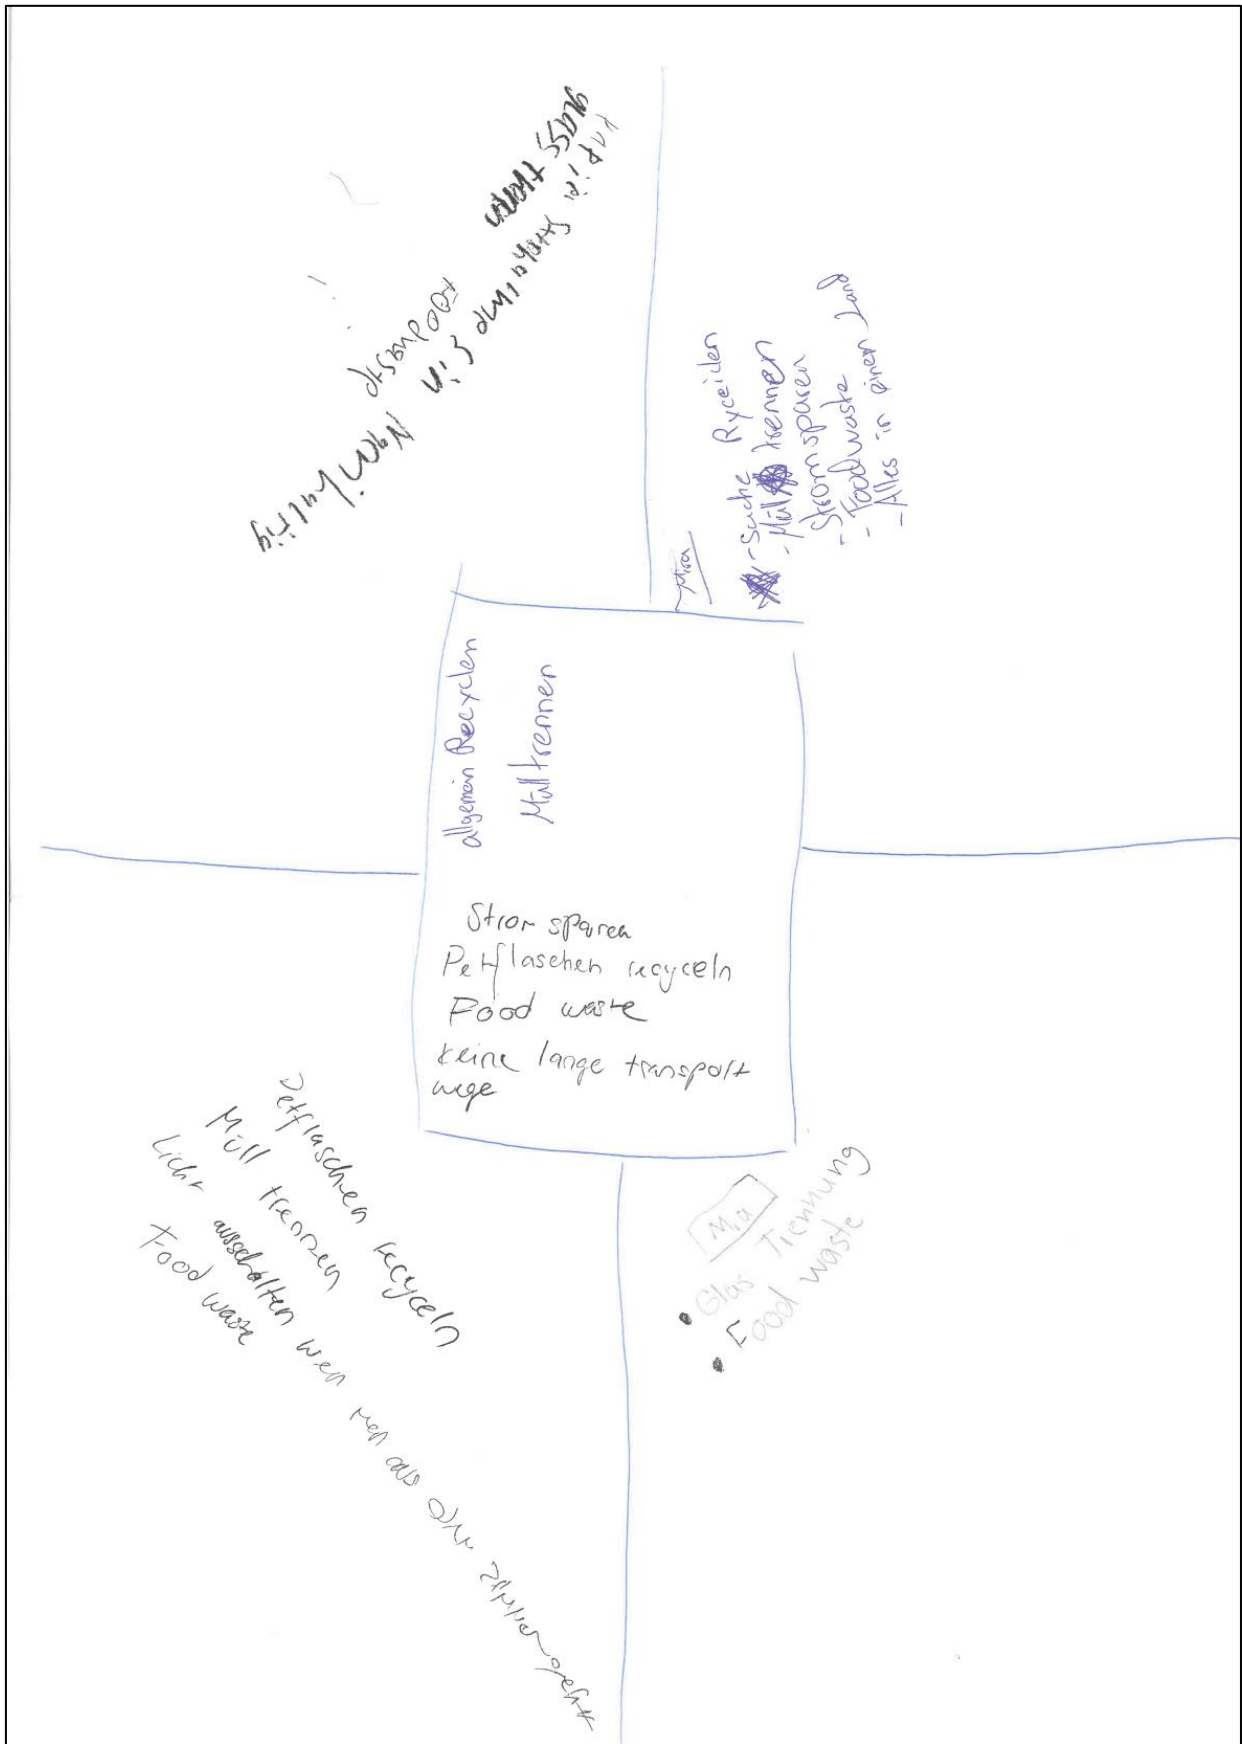 Foodwaste
Mira
- Suche Ryceiclen
- Mül trennen
- Strom sparen
- Foodwaste
- Alles in einem Land
allgemein Recyclen
Mülltrennen
Strom sparen
Petflaschen recyceln
Food waste
keine lange transport
wege
Petflaschen recyceln
Müll trennen
Licht ausschalten wen man aus dem zimmer geht
Food waste
Mia
• Glas Trennung
• Food waste